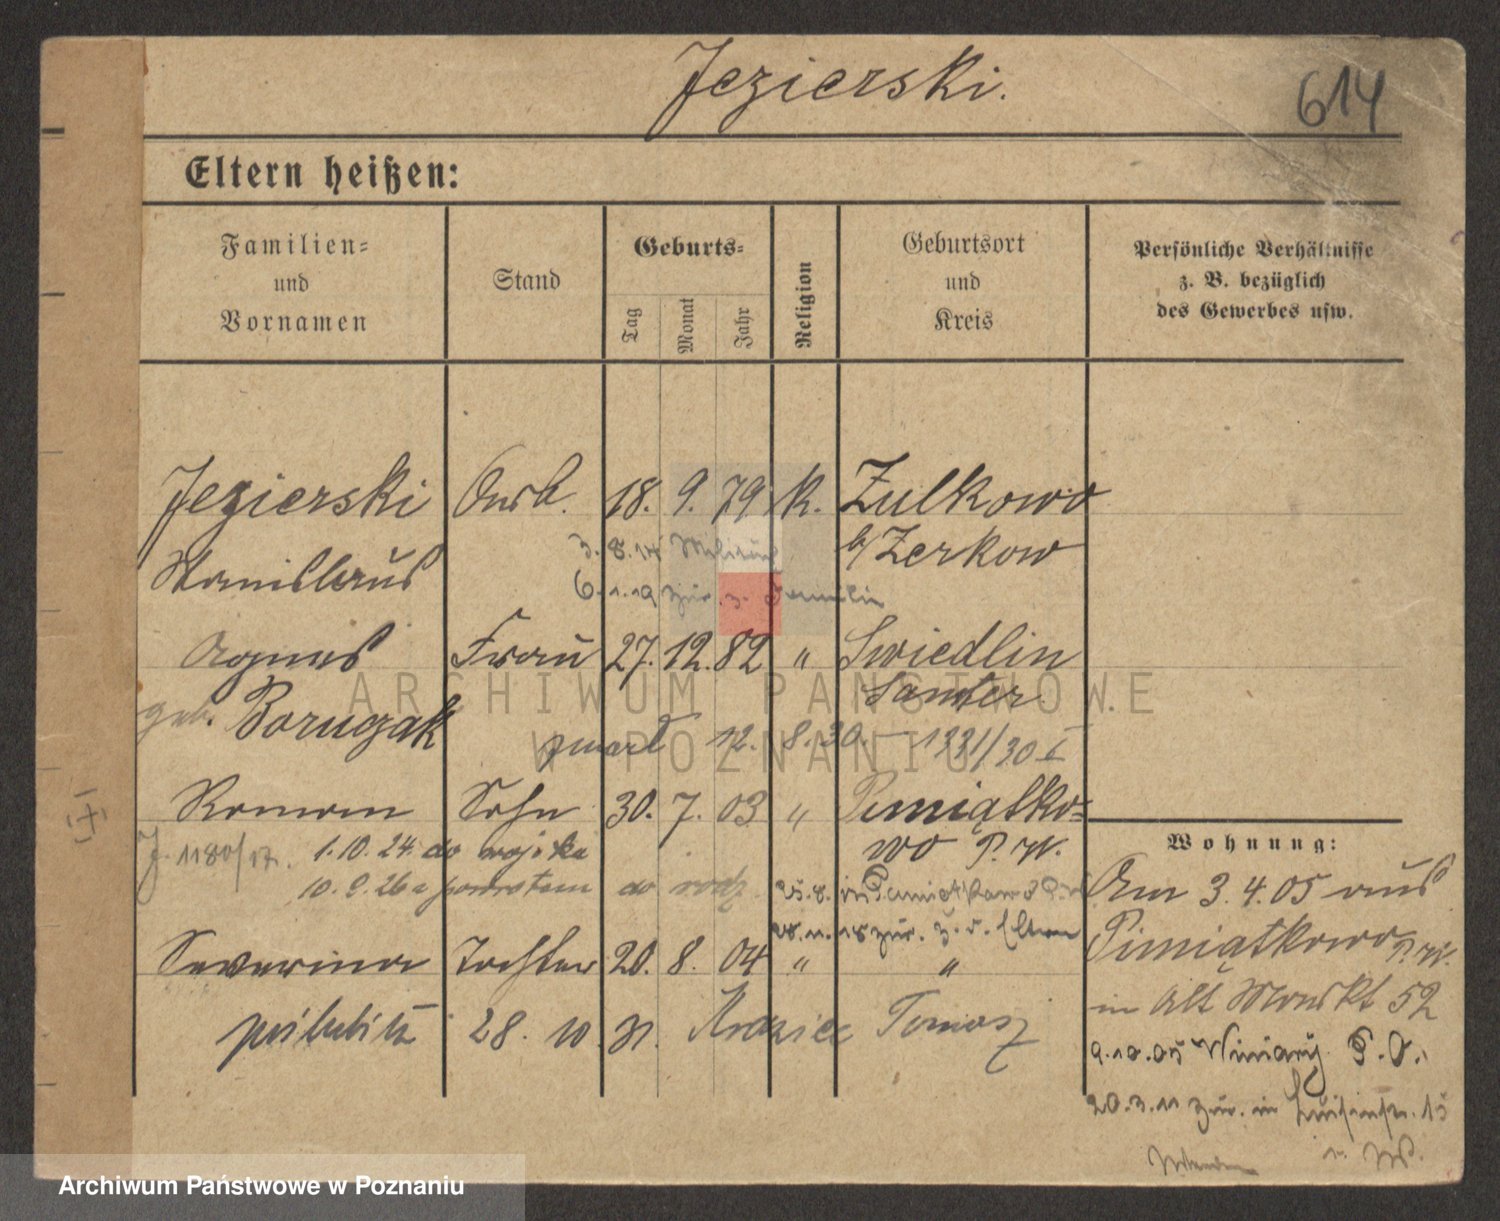 Jezierski.
614
Eltern heißen:
Familien-
und
Vornamen
Stand
Geburts-
Tag
Monat
Jahr
Religion
Geburtsort
und
Kreis
Persönliche Verhältnisse
z. B. bezüglich
des Gewerbes usw.
Jezierski Arb. 18. 9. 79 k. Zulkowo
3. 8. 14 Militär b/ Zerkow
Stanislaus
6. 1. 19 zur. z. Familie
Agnes Frau 27. 12. 82 " Swiedlin
Samter
geb. Borugak
zmarł 12. 8. 30. – 1331/30 I
Roman Sohn 30. 7. 03 " Pimiątko-
wo P. W.
J. 1180/17. 1. 10. 24. do wojska
Wohnung:
10. 9. 26 z powrotem do rodz.
25. 8. in
28. 11. 18 zur. z. d. Eltern
Severina Tochter 20. 8. 04 " "
28. 10. 31. Tomasz
Am 3. 4. 05 aus
Pimiątkowo P. W.
in Alt Markt 52
9. 10. 05 Winiary P. O.
20. 3. 11 zur. in Luisenstr. 15
ARCHIWUM PAŃSTWOWE
W POZNANIU
Archiwum Państwowe w Poznaniu